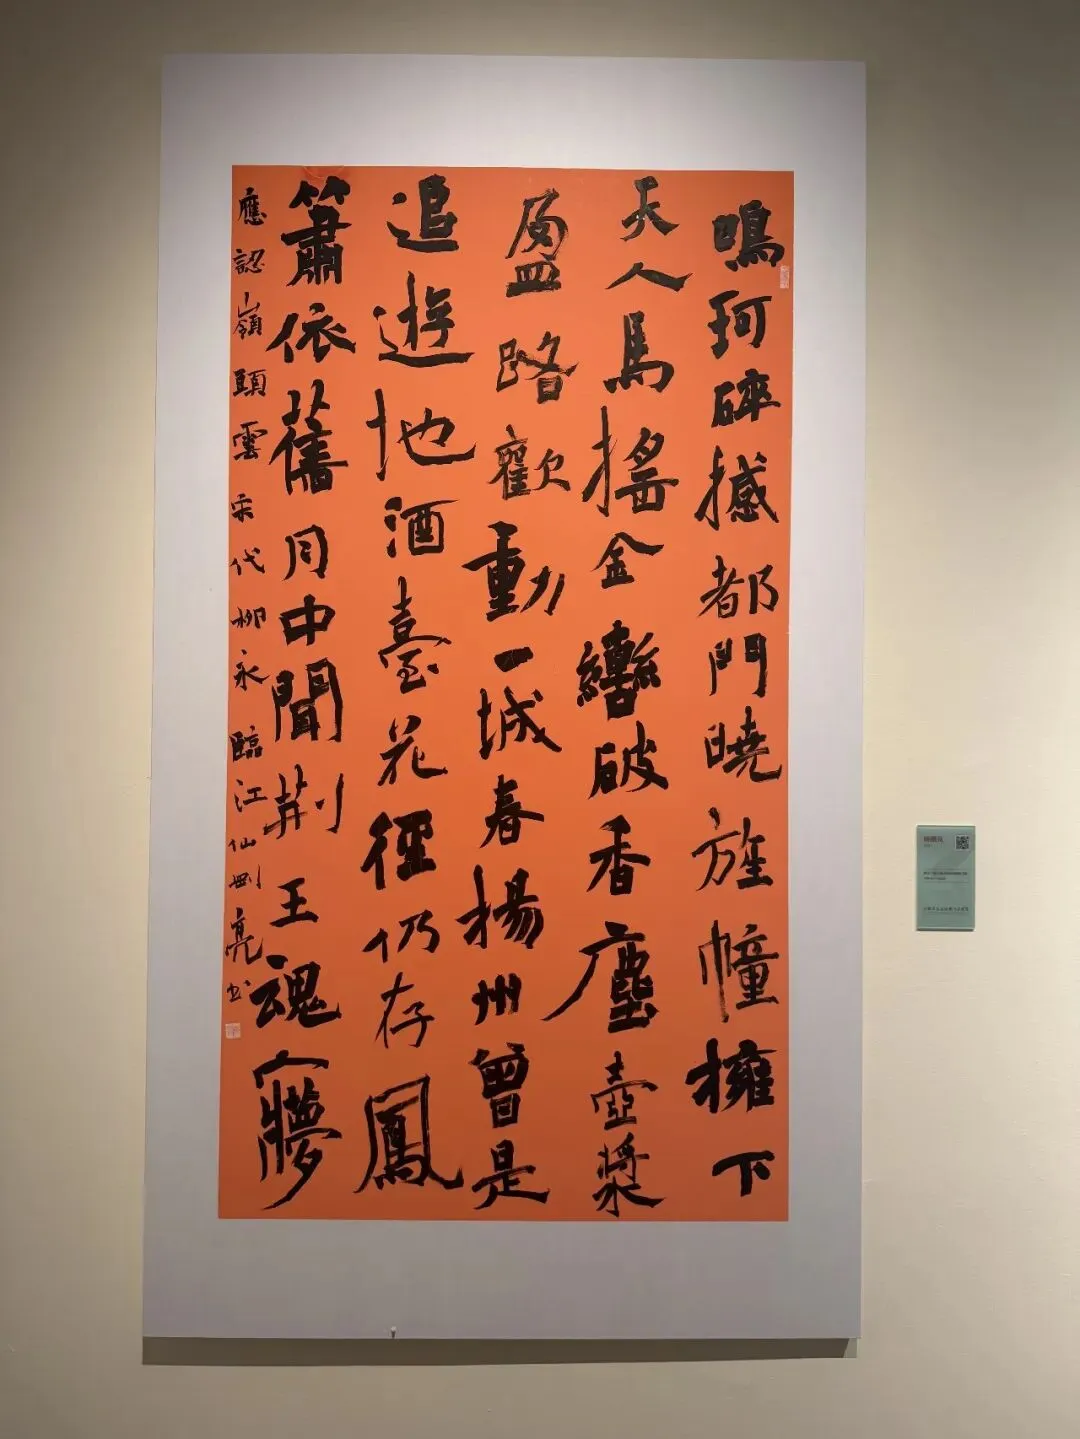 鳴珂碎撼都門曉旌幢擁下
天人馬搖金轡破香塵壺漿
盈路歡動一城春揚州曾是
追遊地酒臺花徑仍存鳳
簫依舊月中聞荆王魂夢
應認嶺頭雲宋代柳永臨江仙劉亮书